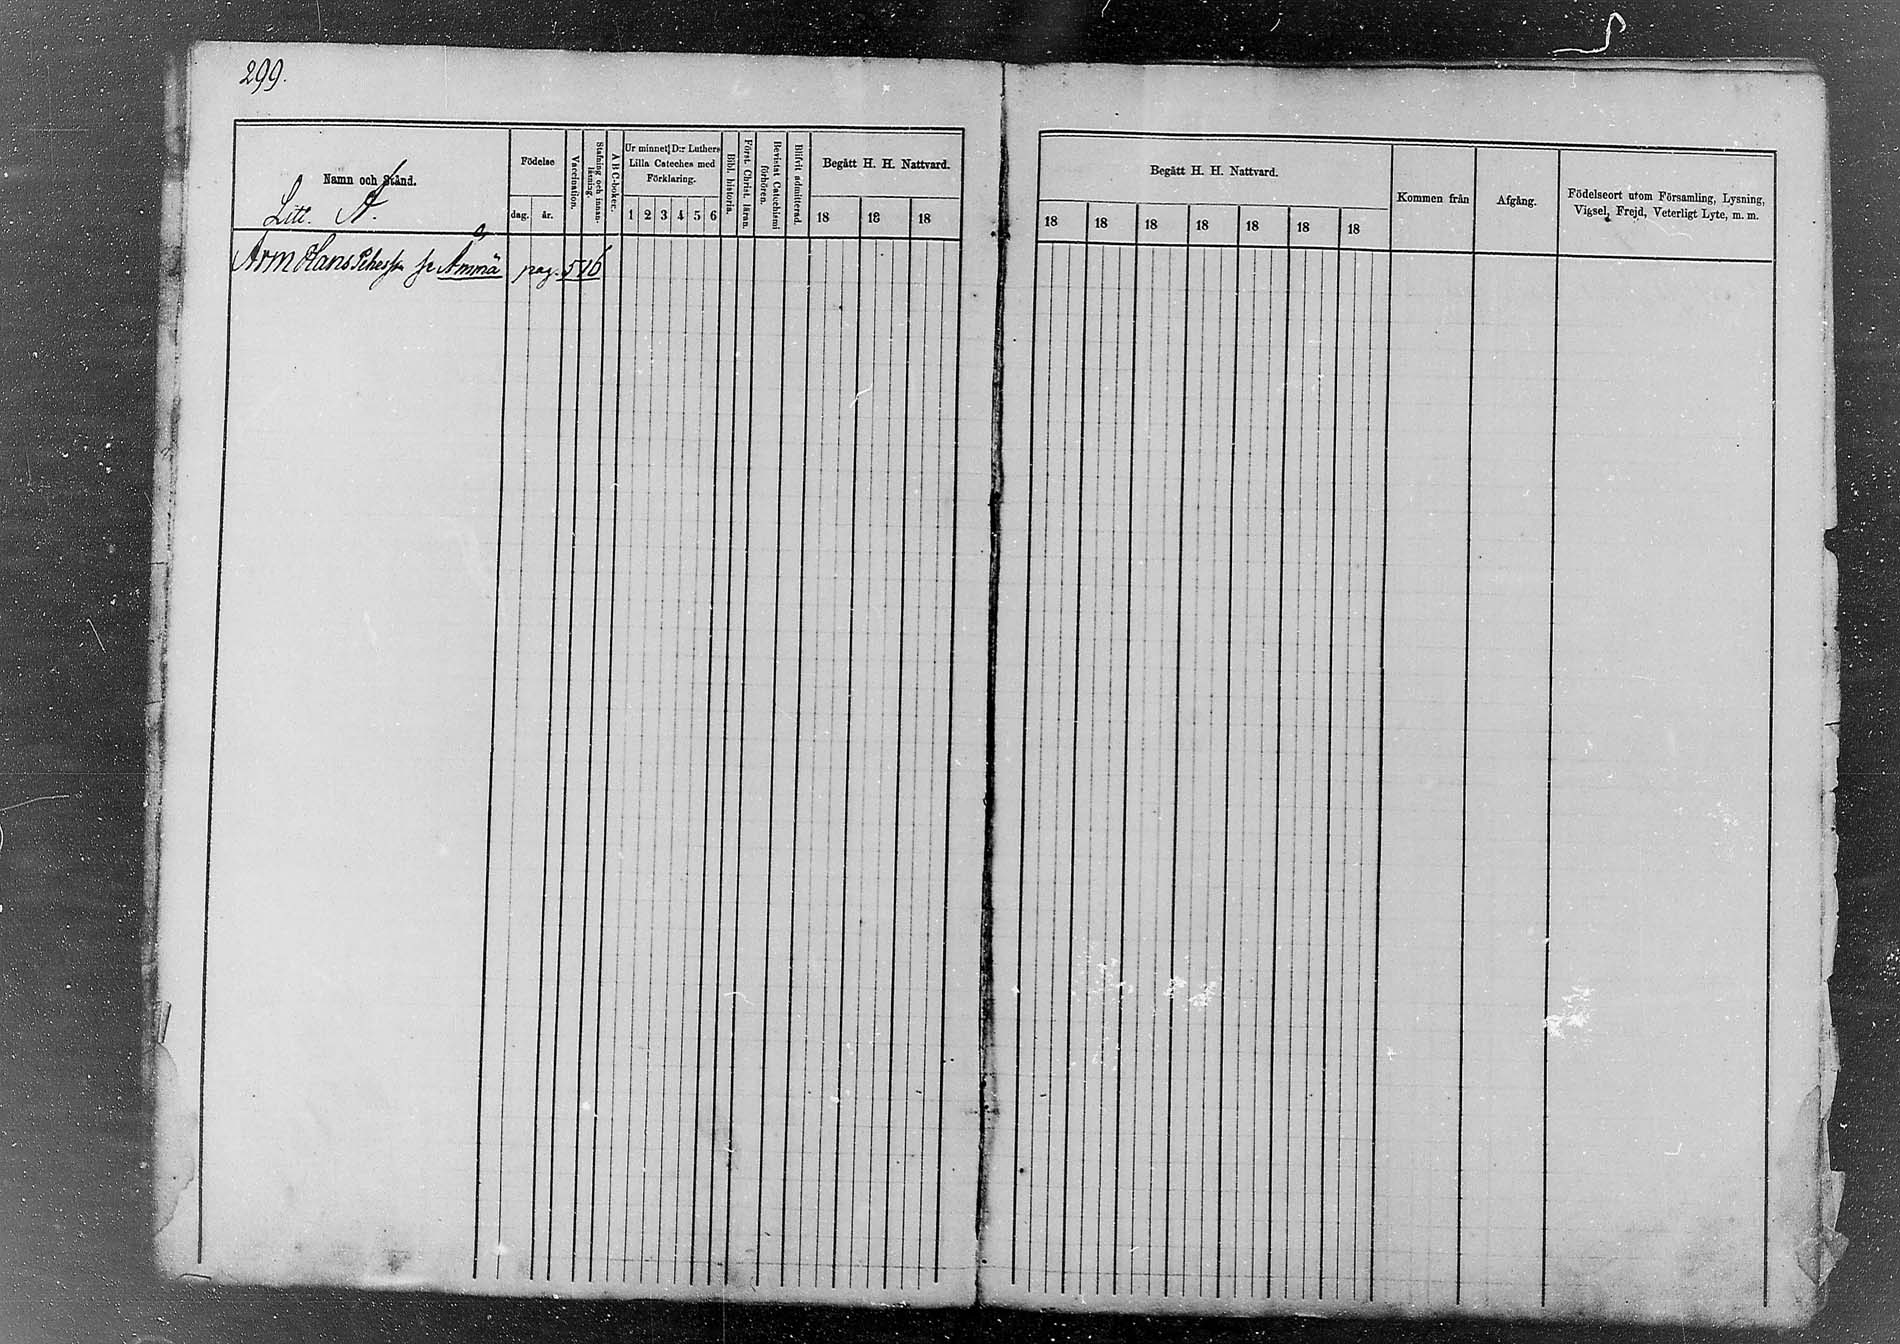 299.
Namn och Stånd.
Litt. A.
Födelse
dag. år.
Vaccination.
Stafning och innan-
läsning.
A B C-boken.
Ur minnet: D:r Luthers
Lilla Cateches med
Förklaring.
1 2 3 4 5 6
Bibl. historia.
Först. Christ. läran.
Bevistat Catechismi
förhören.
Blifvit admitterad.
Begått H. H. Nattvard.
18 18 18
Begått H. H. Nattvard.
18 18 18 18 18 18 18
Kommen från
Afgång.
Födelseort utom Församling, Lysning,
Vigsel, Frejd, Veterligt Lyte, m. m.
Arm Hans se Ammä pag. 516